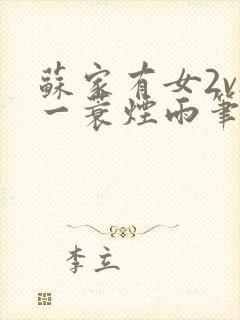 蘇家有女2v
一蓑煙雨筆
李立